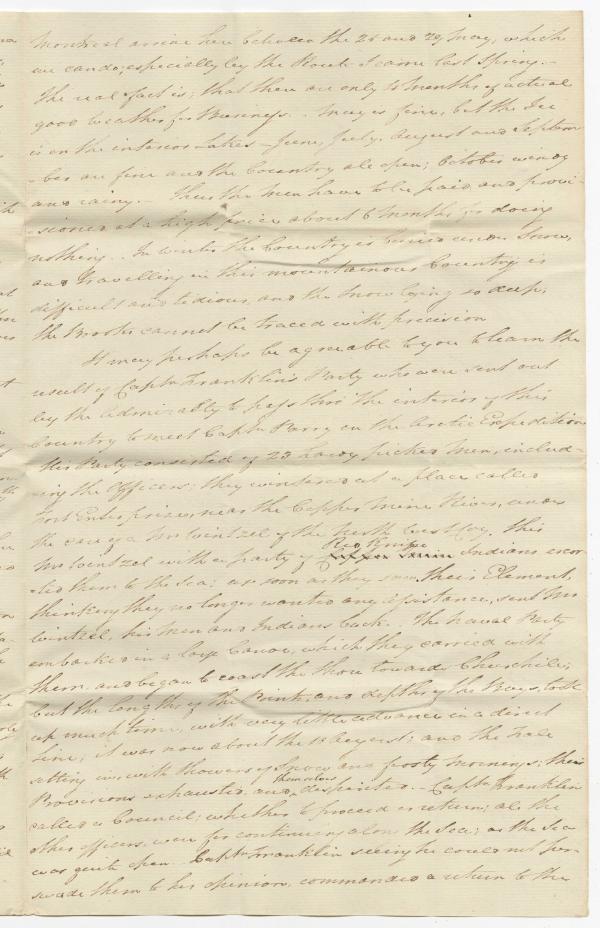 Montreal arrive here between the 25 and 29 May, which
we can do; especially by the Route I came last Spring.-
The real fact is; that there are only 4 months of actual
good Weather for Business. May is fine, but the Ice
is on the interior Lakes - June, July, August and Septem
-ber are fine and the Country all open; October windy
and rainy. - Thus the Men have to be paid and provi-
-sioned at a high price about 6 Months for doing
nothing. - In Winter the Country is buried under Snow,
and travelling in this mountainous Country is
difficult and tedious, and the Snow lying so deep;
the Brooks cannot be traced with precision
It may perhaps be agreeable to you to learn the
result of Captn Franklin's Party who were sent out
by the Admiralty to pass thro the interior of this
Country to meet Captn Parry on the Arctic Expedition
His Party consisted of 23 hardy picked Men, includ-
-ing the Officers; they wintered at a place called
Fort Enterprize, near the Copper Mine River, under
the care of a Mr Wintzel of the North West Coy. This
Mr Wintzel with a party of Red Knife Indians escor
-ted them to the Sea; as soon as they saw their Element,
thinking they no longer wanted any assistance, sent Mr
Wintzel, his Men and Indians back. - The Naval Party
embarked in a large Canoe, which they carried with
them, and began to coast the shore towards Churchill;
but the lengths of the Points, and depths of the Bays, took
up much time, with very little advance in a direct
line; it was now about the August; and the Fall
setting in, with showers of Snow and frosty Mornings; their
Provisions exhausted and themselves dispirited. - Captn Franklin
called a Council; whether to proceed or return; all the
other officers were for continuing along the Sea; as the Sea
was quite open. Captn Franklin seeing he could not per-
suade them to his opinion, commanded a return to the